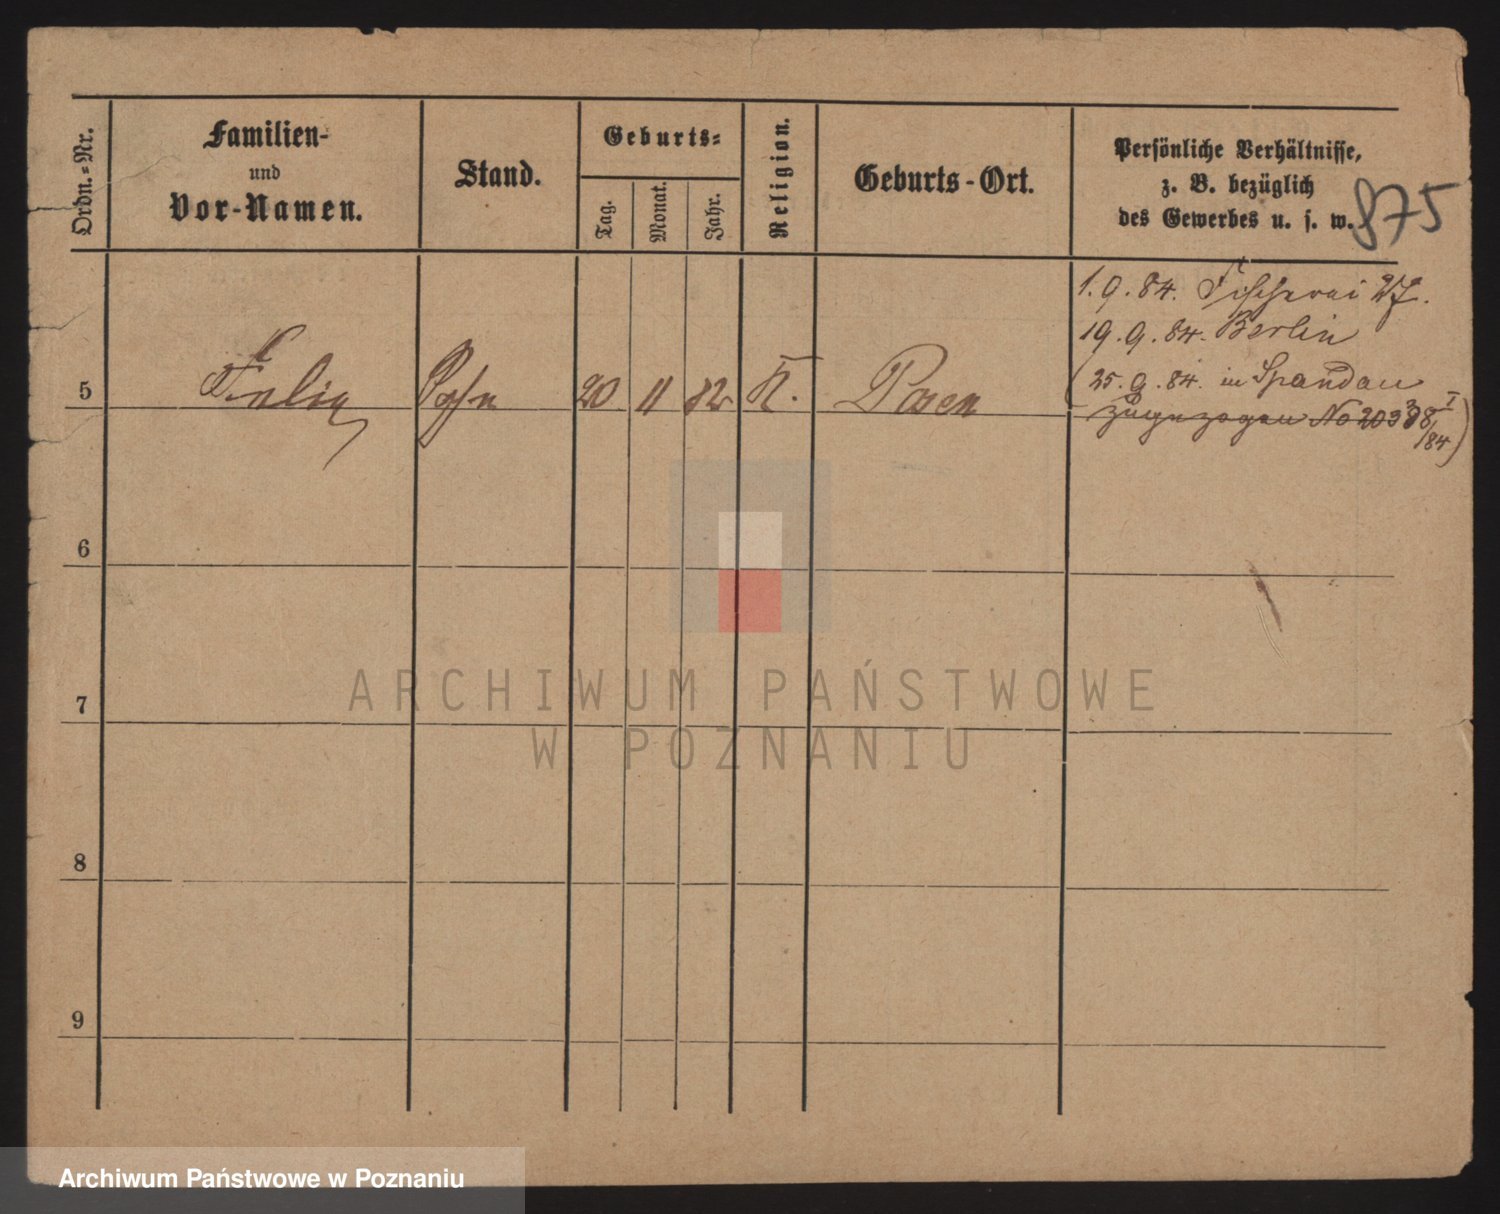 Ordn.-Nr.
Familien-
und
Vor-Namen.
Stand.
Geburts-
Tag.
Monat.
Jahr.
Religion.
Geburts-Ort.
Persönliche Verhältnisse,
z. B. bezüglich
des Gewerbes u. s. w.
875
1.9.84. Fischerei 27.
19.9.84. Berlin
(25.9.84. in Spandau
zugezogen No 203
5 Felix Sohn 20 11 82 K. Posen
6
7
8
9
ARCHIWUM PAŃSTWOWE
W POZNANIU
Archiwum Państwowe w Poznaniu